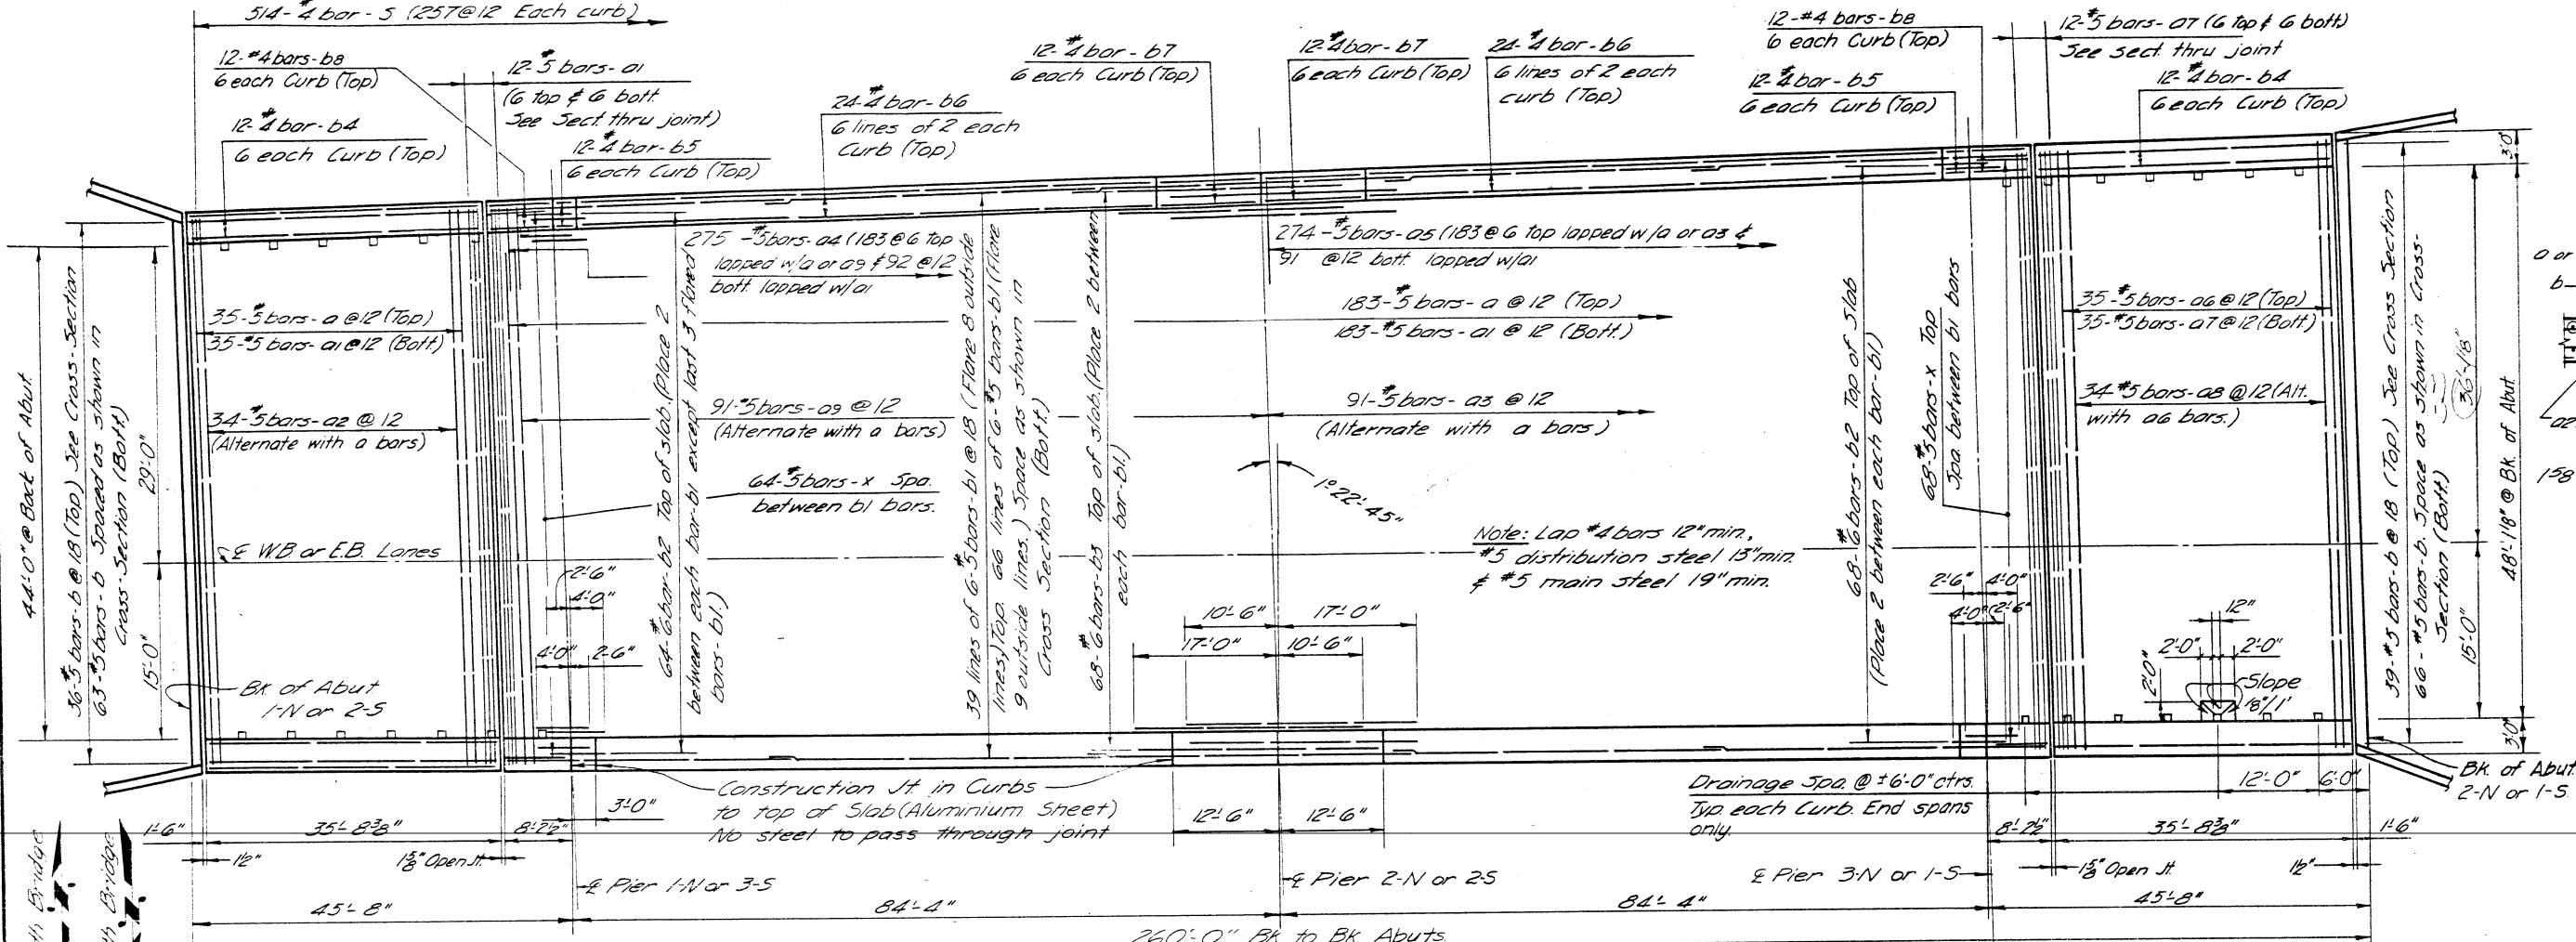 514-#4 bar-S (257@12 Each curb)
12-#4 bars-b8
6 each Curb (Top)
12-#5 bars-a1
(6 top & 6 bott.
See Sect. thru joint)
12-#4 bar-b4
6 each Curb (Top)
12-#4 bar-b5
6 each Curb (Top)
24-#4 bar-b6
6 lines of 2 each
Curb (Top)
12-#4 bar-b7
6 each Curb (Top)
12-#4 bar-b7
6 each Curb (Top)
24-#4 bar-b6
6 lines of 2 each
curb (Top)
12-#4 bars-b8
6 each Curb (Top)
12-#4 bar-b5
6 each Curb (Top)
12-#5 bars-a7 (6 top & 6 bott)
See sect. thru joint
12-#4 bar-b4
6 each Curb (Top)
44'-0" @ Back of Abut.
36-#5 bars-b @ 18 (Top) See Cross-Section
63-#5 bars-b Spaced as shown in
Cross-Section (Bott.)
29'-0"
15'-0"
35-#5 bars-a @ 12 (Top)
35-#5 bars-a1 @ 12 (Bott.)
34-#5 bars-a2 @ 12
(Alternate with a bars)
℄ W.B. or E.B. Lanes
BK of Abut
1-N or 2-S
275-#5 bars-a4 (183 @ 6 top
lapped w/a or a9 & 92 @ 12
bott. lapped w/a1
64-#6 bar-b2 Top of slab. (Place 2
between each bar-b1 except last 3 flared
bars-b1.)
91-#5 bars-a9 @ 12
(Alternate with a bars)
64-#5 bars-x Spa.
between b1 bars.
39 lines of 6-#5 bars-b1 @ 18 (Flare 8 outside
lines) Top. 66 lines of 6-#5 bars-b1 (Flare
9 outside lines.) Space as shown in
Cross Section (Bott.)
68-#6 bars-b3 Top of slab. (Place 2 between
each bar-b1.)
274-#5 bars-a5 (183 @ 6 top lapped w/a or a3 &
91 @12 bott. lapped w/a1
183-#5 bars-a @ 12 (Top)
183-#5 bars-a1 @ 12 (Bott.)
91-#5 bars-a3 @ 12
(Alternate with a bars)
1°-22'-45"
Note: Lap #4 bars 12" min.,
#5 distribution steel 13" min.
& #5 main steel 19" min.
68-#6 bars-b2 Top of Slab
(Place 2 between each bar-b1)
68-#5 bars-x Top
Spa. between b1 bars
35-#5 bars-a6 @ 12 (Top)
35-#5 bars-a7 @ 12 (Bott.)
34-#5 bars-a8 @ 12 (Alt.
with a6 bars.)
39-#5 bars-b @ 18 (Top) See Cross Section
66-#5 bars-b. Space as shown in Cross-
Section (Bott.)
3'-0"
15'-0"
48'-11⅛" @ Bk. of Abut
3'-0"
a or
b
a2
158
2'-6"
4'-0"
4'-0" 2'-6"
10'-6" 17'-0"
17'-0" 10'-6"
2'-6" 4'-0"
4'-0" 2'-6"
12"
2'-0" 2'-0"
2'-0"
Slope
⅛"/1'
Construction Jt. in Curbs
to top of Slab (Aluminium Sheet)
No steel to pass through joint
3'-0"
12'-6" 12'-6"
Drainage Spa. @ ±6'-0" ctrs.
Typ. each Curb. End spans
only.
12'-0" 6'-0"
BK. of Abut.
2-N or 1-S
1'-6" 35'-8⅜" 8'-2½"
1½" 1⅝" Open Jt.
8'-2½" 35'-8⅜" 1'-6"
1⅝" Open Jt. 1½"
℄ Pier 1-N or 3-S
℄ Pier 2-N or 2-S
℄ Pier 3-N or 1-S
45'-8" 84'-4" 84'-4" 45'-8"
260'-0" BK to BK. Abuts.
th Bridge
th Bridge